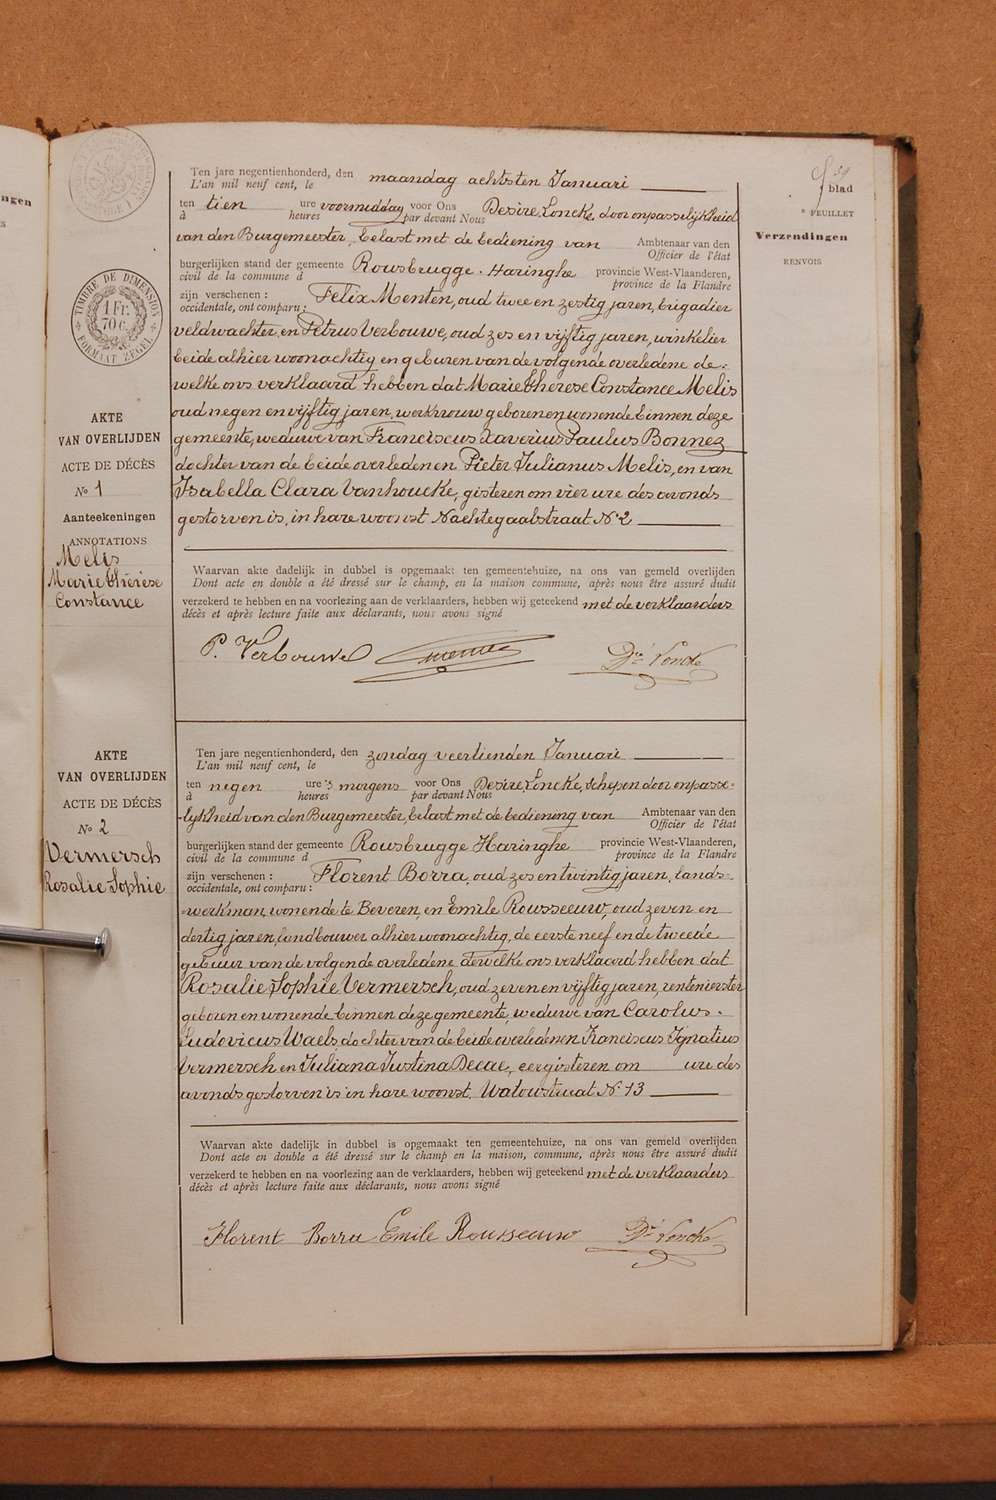 59
blad
* FEUILLET
Verzendingen
RENVOIS
ngen
TIMBRE DE DIMENSION
1 Fr. 70 c.
FORMAAT ZEGEL
AKTE
VAN OVERLIJDEN
ACTE DE DÉCÈS
No 1
Aanteekeningen
ANNOTATIONS
Melis
Marie Thérèse
Constance
Ten jare negentienhonderd, den maandag achtsten Januari
L'an mil neuf cent, le
ten tien ure voormiddag voor Ons Desiré Loncke, door onpasselijkheid
à heures par devant Nous
van den Burgemeester, belast met de bediening van Ambtenaar van den
Officier de l'état
burgerlijken stand der gemeente Rousbrugge-Haringhe provincie West-Vlaanderen,
civil de la commune d province de la Flandre
zijn verschenen : Felix Menten, oud twee en zestig jaren, brigadier
occidentale, ont comparu :
veldwachter, en Petrus Verbouwe, oud zes en vijftig jaren, winkelier
beide alhier woonachtig en geburen van de volgende overledene de-
welke ons verklaard hebben dat Marie Thérèse Constance Melis
oud negen en vijftig jaren, werkvrouw geboren en wonende binnen deze
gemeente, weduwe van Franciscus Xaverius Paulus Bonnez
dochter van de beide overledenen Pieter Julianus Melis, en van
Isabella Clara Vanhoucke, gisteren om vier ure des avonds
gestorven is, in hare woonst Nachtegaalstraat No 2
Waarvan akte dadelijk in dubbel is opgemaakt ten gemeentehuize, na ons van gemeld overlijden
Dont acte en double a été dressé sur le champ, en la maison commune, après nous être assuré dudit
verzekerd te hebben en na voorlezing aan de verklaarders, hebben wij geteekend met de verklaarders
décès et après lecture faite aux déclarants, nous avons signé
P. Verbouwe Dré Loncke
AKTE
VAN OVERLIJDEN
ACTE DE DÉCÈS
No 2
Vermersch
Rosalie Sophie
Ten jare negentienhonderd, den zondag veertienden Januari
L'an mil neuf cent, le
ten negen ure 's morgens voor Ons Desiré Loncke, schepen door onpasse-
à heures par devant Nous
-lijkheid van den Burgemeester, belast met de bediening van Ambtenaar van den
Officier de l'état
burgerlijken stand der gemeente Rousbrugge Haringhe provincie West-Vlaanderen,
civil de la commune d province de la Flandre
zijn verschenen : Florent Borra, oud zes en twintig jaren, lands-
occidentale, ont comparu :
-werkman, wonende te Beveren, en Emile Rousseeuw, oud zeven en
dertig jaren, landbouwer alhier woonachtig, de eerste neef en de tweede
gebuur van de volgende overledene dewelke ons verklaard hebben dat
Rosalie Sophie Vermersch, oud zeven en vijftig jaren, rentenierster
geboren en wonende binnen deze gemeente, weduwe van Carolus-
Ludovicus Waels, dochter van de beide overledenen Franciscus Ignatius
Vermersch en Juliana Justina Decae, eergisteren om ure des
avonds gestorven is in hare woonst, Watoustraat No 13
Waarvan akte dadelijk in dubbel is opgemaakt ten gemeentehuize, na ons van gemeld overlijden
Dont acte en double a été dressé sur le champ, en la maison, commune, après nous être assuré dudit
verzekerd te hebben en na voorlezing aan de verklaarders, hebben wij geteekend met de verklaarders
décès et après lecture faite aux déclarants, nous avons signé
Florent Borra Emile Rousseeuw Dré Loncke